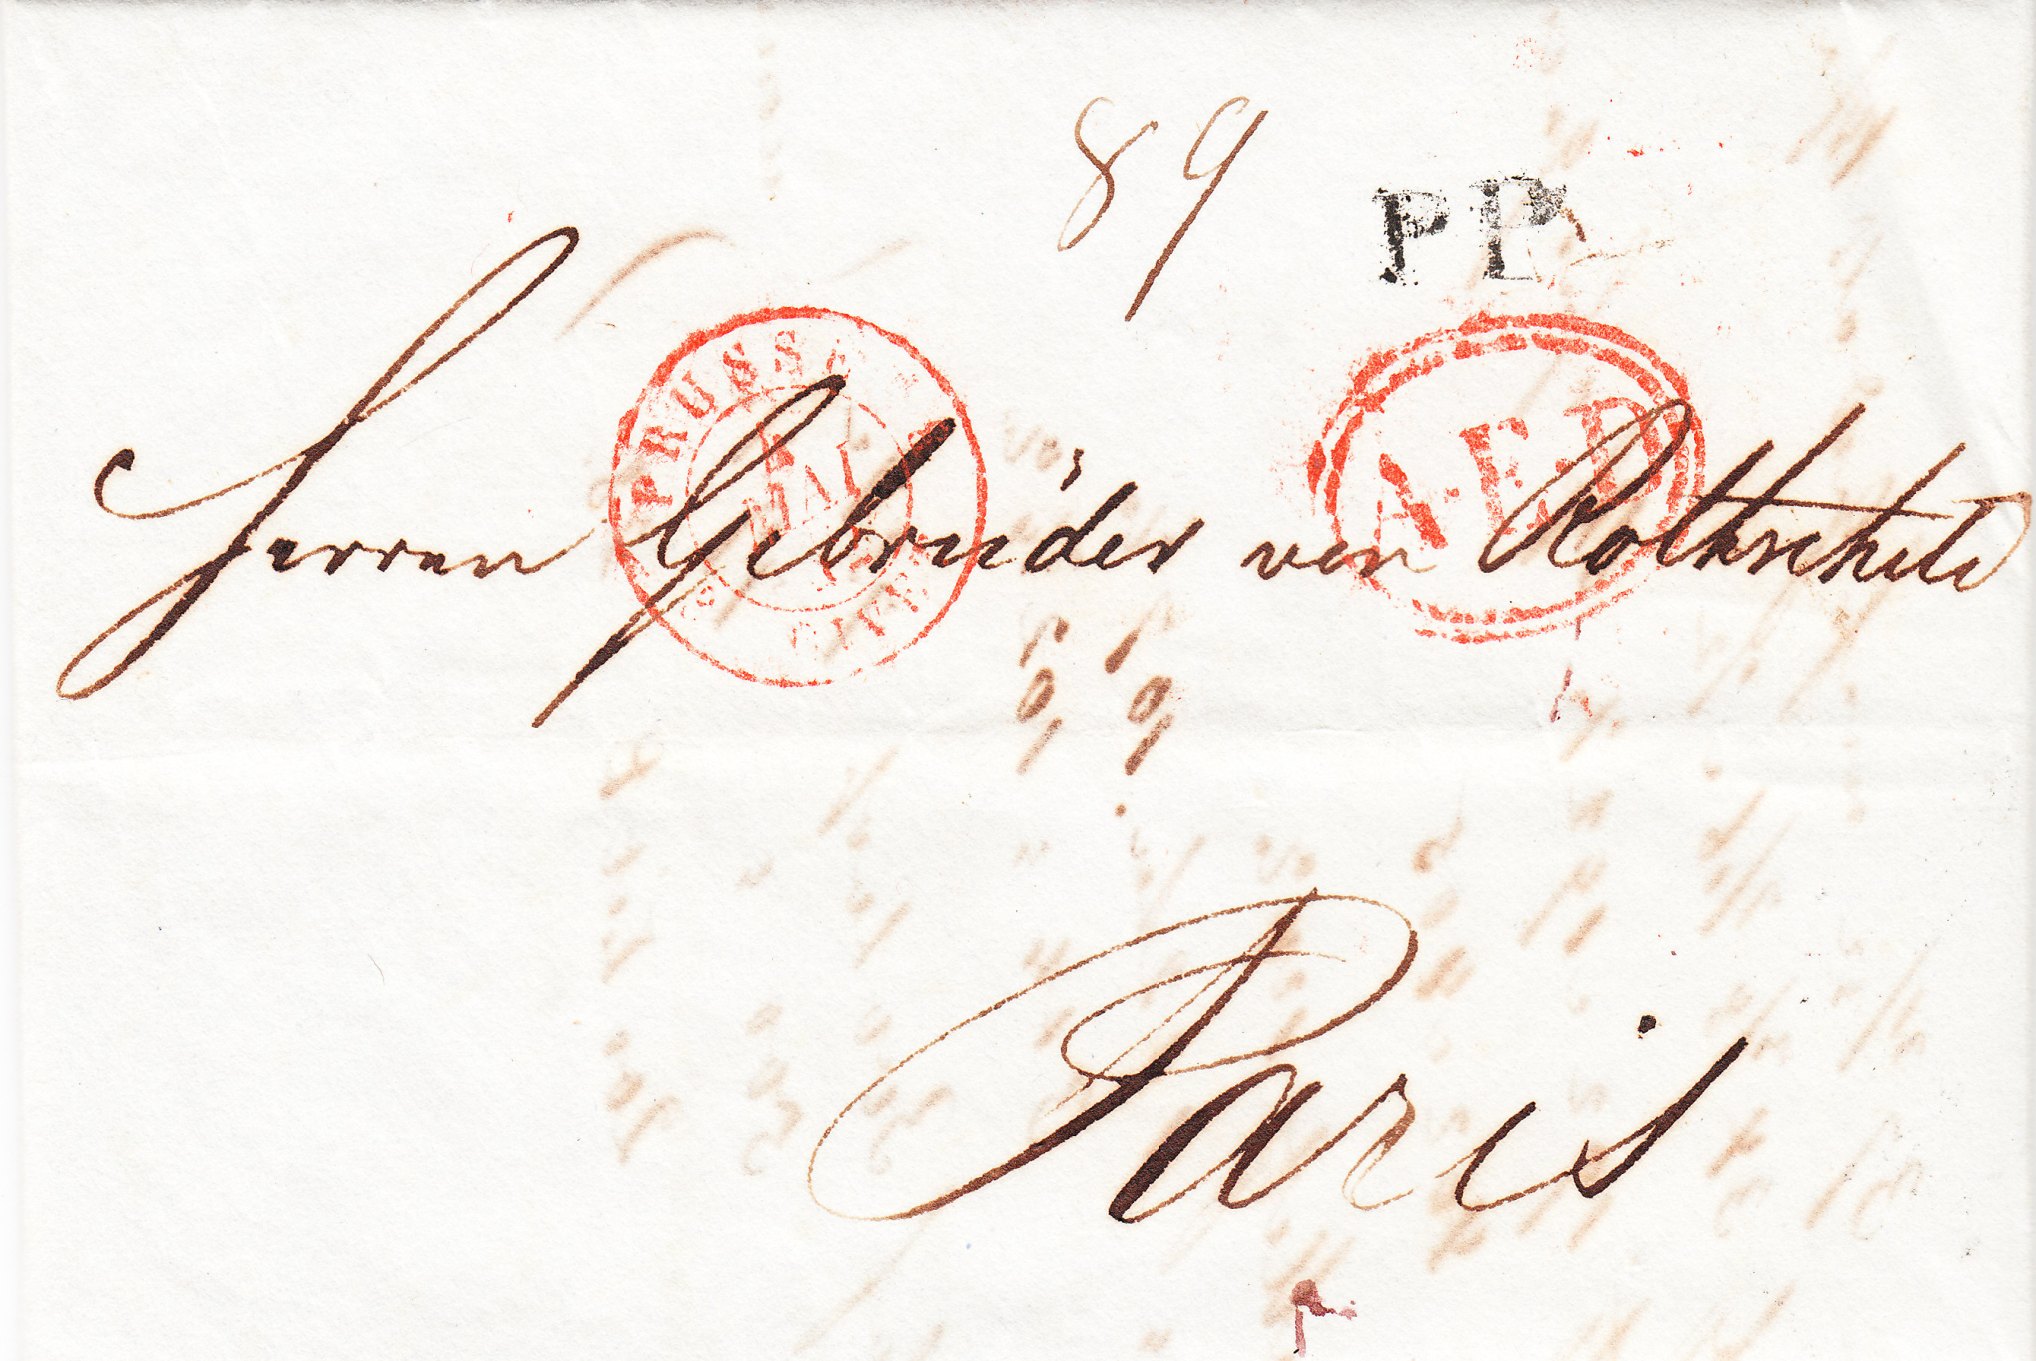 89
PP
PRUSSE
MAI
GIVET
A.E.D
Herren Gebrüder von Rothschild
Paris